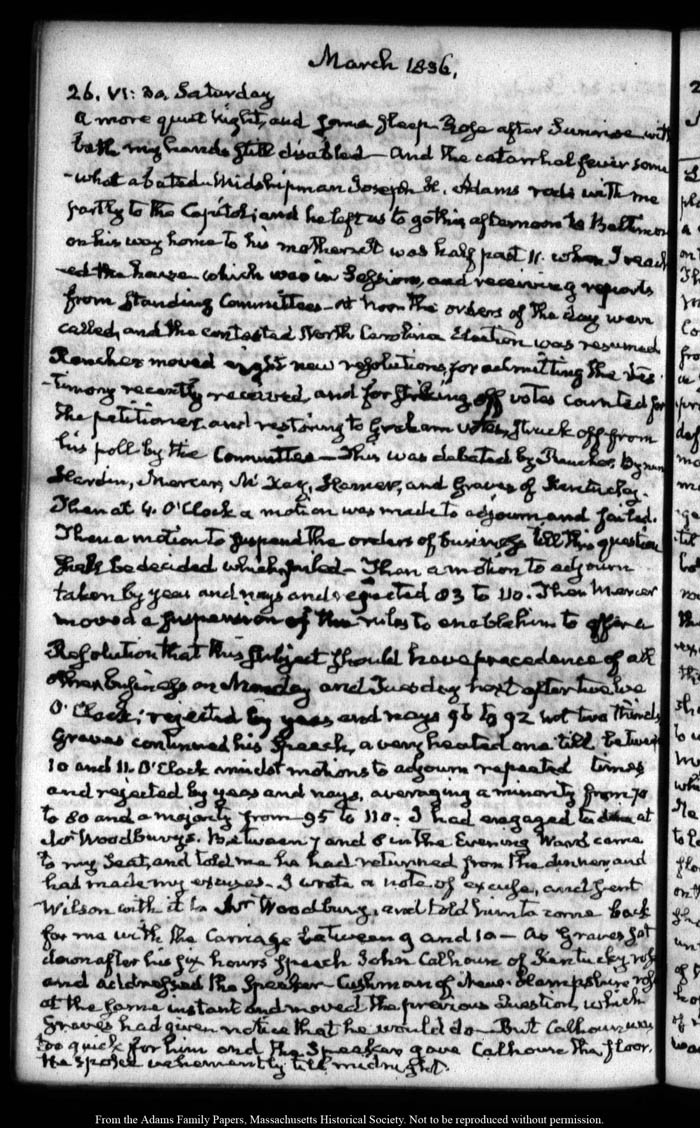 March 1836.
26. VI: 30. Saturday
A more quiet night, and some sleep. Rose after Sunrise with
both my hands still disabled — And the catarrhal fever some
-what abated. Midshipman Joseph H. Adams rode with me
partly to the Capitol; and he left us to go this afternoon to Baltimore
on his way home to his mother. It was half past 11. when I reach
-ed the house which was in Session, and receiving reports
from standing Committees — At Noon the orders of the day were
called, and the contested North Carolina Election was resumed
Rencher moved eight new resolutions, for admitting the tes-
-timony recently received, and for striking off votes counted for
the petitioner, and restoring to Graham votes struck off from
his poll by the Committee — This was debated by Rencher, Bynum
Hardin, Mercer, McKay, Hamer, and Graves of Kentucky.
Then at 4. O'Clock a motion was made to adjourn and failed.
Then a motion to suspend the orders of business till this question
shall be decided which failed — Then a motion to adjourn
taken by yeas and nays and rejected 83 to 110. Then Mercer
moved a suspension of the rules to enable him to offer a
Resolution that this subject should have precedence of all
other business on Monday and Tuesday next after twelve
O'Clock; rejected by yeas and nays 96 to 92 not two thirds
Graves continued his Speech, a very heated one till between
10 and 11. O'Clock amidst motions to adjourn repeated times
and rejected by yeas and nays, averaging a minority from 70
to 80 and a majority from 95 to 110. I had engaged to dine at
Mr Woodbury's. Between 7 and 8 in the Evening Ward came
to my Seat, and told me he had returned from the dinner, and
had made my excuses. I wrote a note of excuse, and sent
Wilson with it to Mr Woodbury, and told him to come back
for me with the Carriage between 9 and 10 — As Graves sat
down after his six hours Speech John Calhoune of Kentucky rose
and addressed the Speaker — Cushman of New-Hampshire rose
at the same instant and moved the previous Question, which
Graves had given notice that he would do — But Calhoun was
too quick for him and the Speaker gave Calhoune the floor.
He spoke vehemently till midnight.
From the Adams Family Papers, Massachusetts Historical Society. Not to be reproduced without permission.